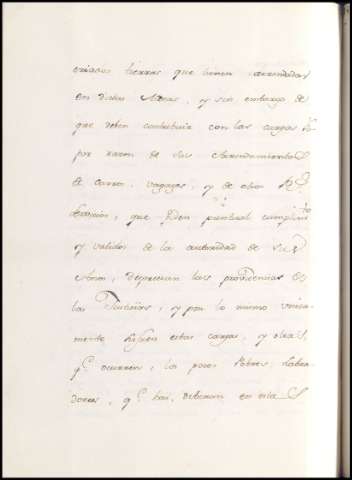 criados tierras que tienen arrendadas
en dichas Aldeas, y sin embargo de
que deben contribuir con las cargas
por razon de sus Arrendamientos
de carros, vagages, y de otro
que piden puntual cumplim.to
y validos de la autoridad de sus
Amos, desprecian las providencias de
las Justicias, y por lo mismo unica-
mente sufren estas cargas, y otras,
q.e ocurren, los pobres Labra-
dores, q.e hai, deberan en esta